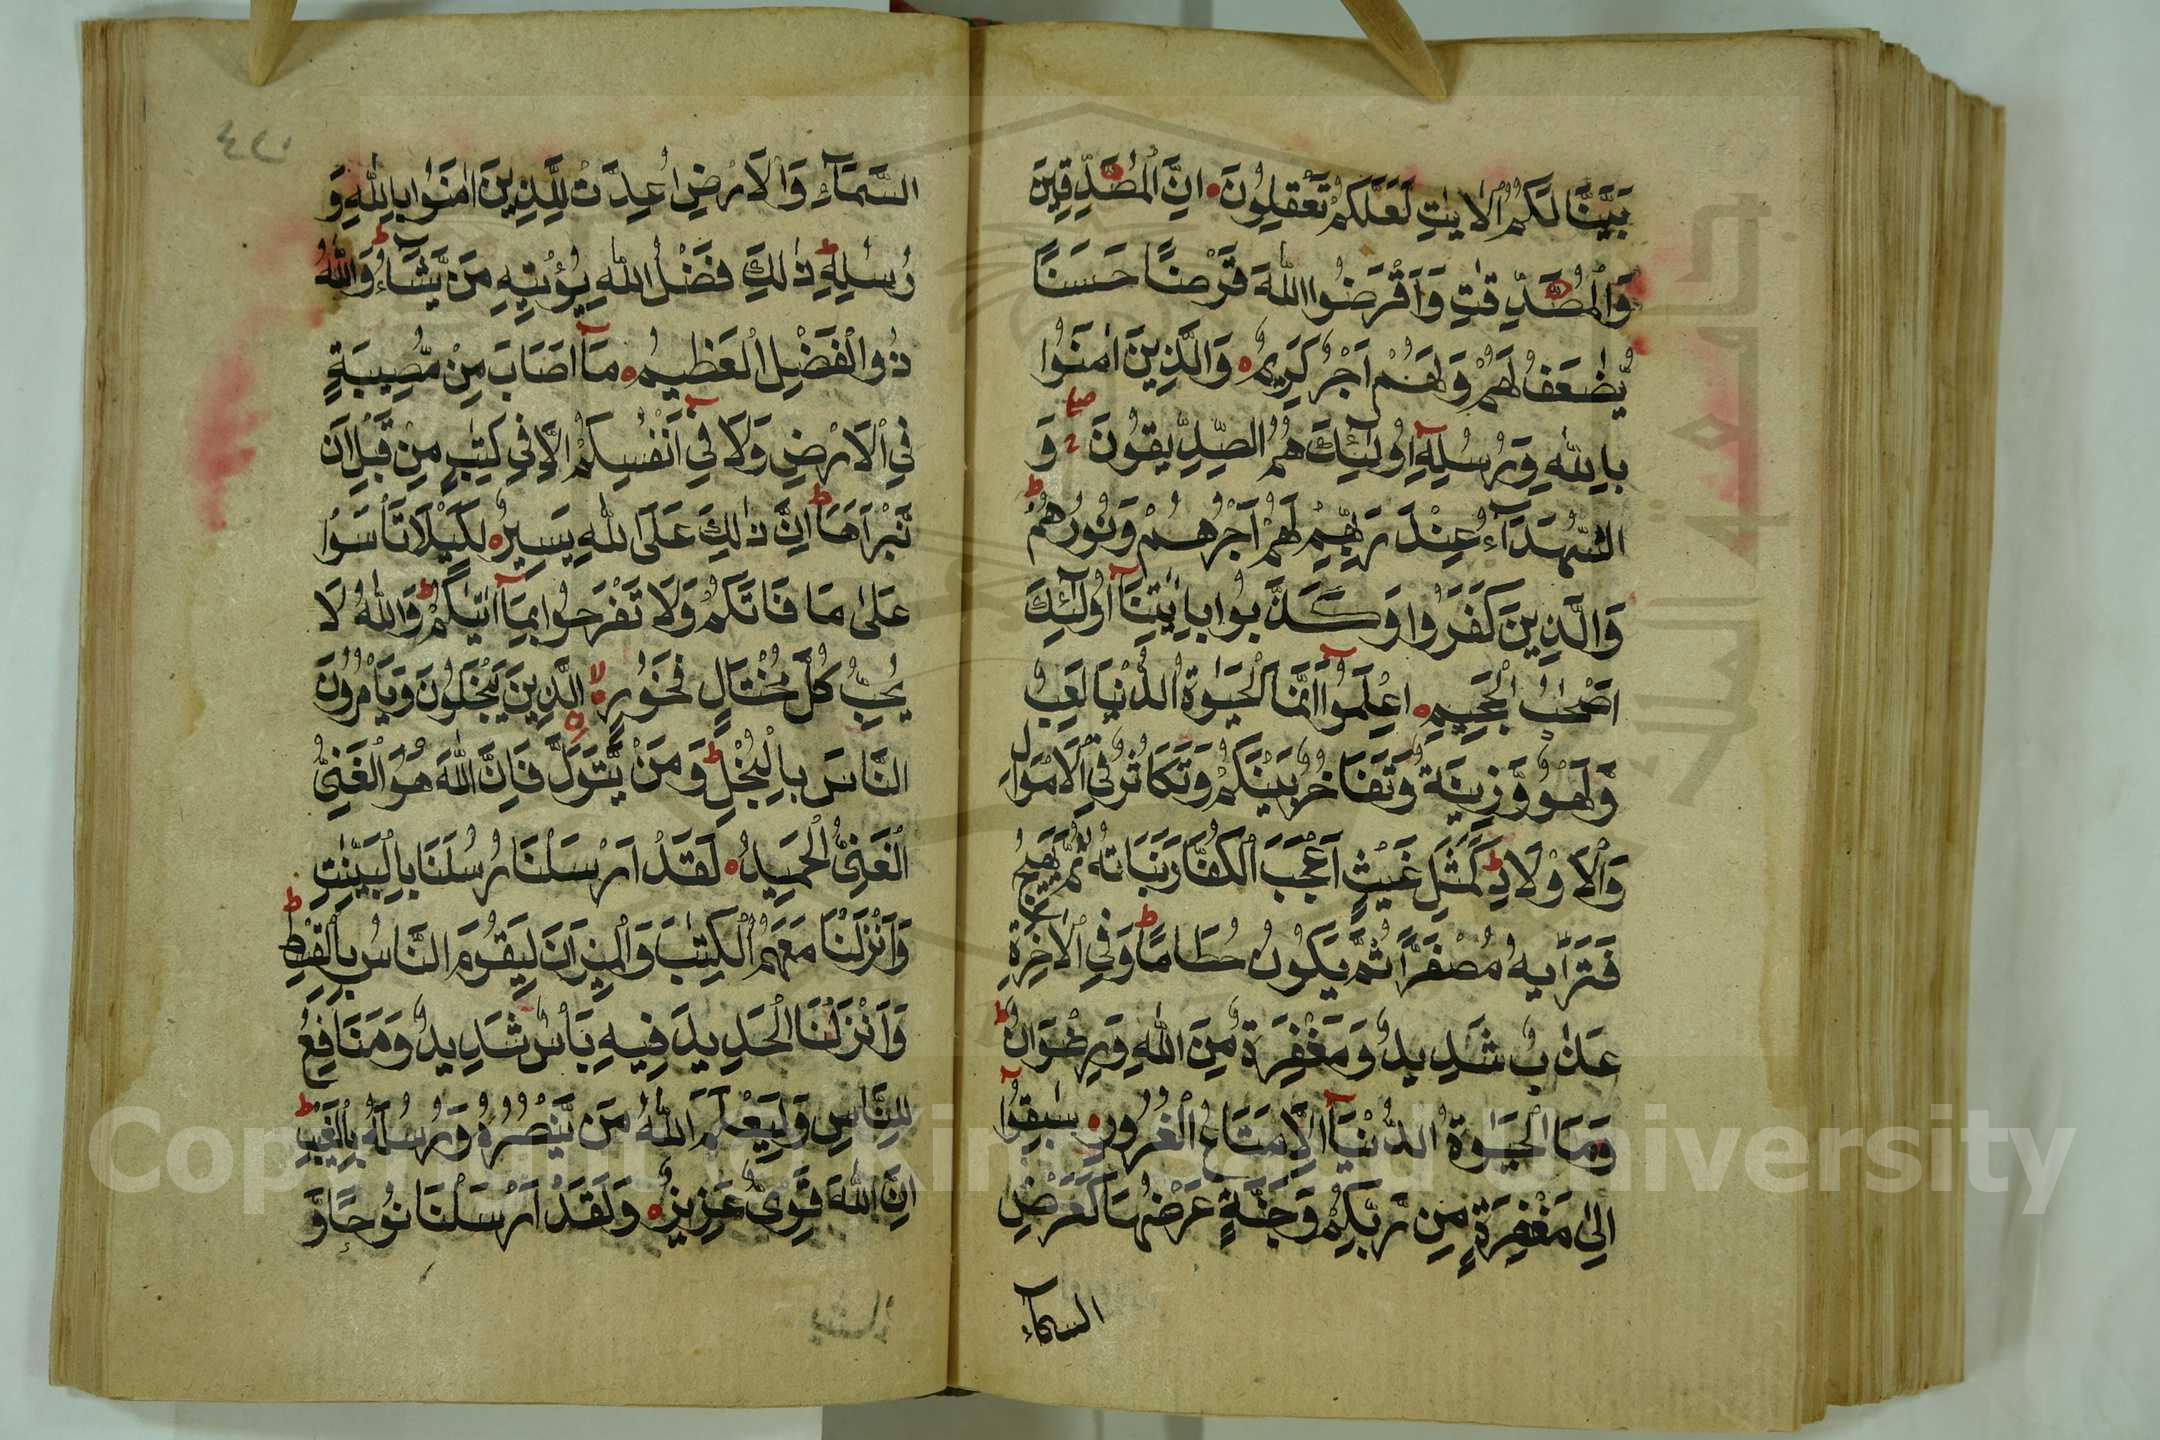 بَيَّنَّا لَكُمُ الْاٰيٰتِ لَعَلَّكُمْ تَعْقِلُوْنَ ۝ اِنَّ الْمُصَّدِّقِيْنَ
وَالْمُصَّدِّقٰتِ وَاَقْرَضُوا اللّٰهَ قَرْضًا حَسَنًا
يُّضٰعَفُ لَهُمْ وَلَهُمْ اَجْرٌ كَرِيْمٌ ۝ وَالَّذِيْنَ اٰمَنُوْا
بِاللّٰهِ وَرُسُلِهٖٓ اُولٰٓئِكَ هُمُ الصِّدِّيْقُوْنَ وَ
الشُّهَدَآءُ عِنْدَ رَبِّهِمْ لَهُمْ اَجْرُهُمْ وَنُوْرُهُمْ ط
وَالَّذِيْنَ كَفَرُوْا وَكَذَّبُوْا بِاٰيٰتِنَآ اُولٰٓئِكَ
اَصْحٰبُ الْجَحِيْمِ ۝ اِعْلَمُوْٓا اَنَّمَا الْحَيٰوةُ الدُّنْيَا لَعِبٌ
وَّلَهْوٌ وَّزِيْنَةٌ وَّتَفَاخُرٌۢ بَيْنَكُمْ وَتَكَاثُرٌ فِي الْاَمْوَالِ
وَالْاَوْلَادِ ط كَمَثَلِ غَيْثٍ اَعْجَبَ الْكُفَّارَ نَبَاتُهٗ ثُمَّ يَهِيْجُ
فَتَرٰىهُ مُصْفَرًّا ثُمَّ يَكُوْنُ حُطَامًا ط وَفِي الْاٰخِرَةِ
عَذَابٌ شَدِيْدٌ وَّمَغْفِرَةٌ مِّنَ اللّٰهِ وَرِضْوَانٌ ط
وَمَا الْحَيٰوةُ الدُّنْيَآ اِلَّا مَتَاعُ الْغُرُوْرِ ۝ سٰبِقُوْٓا
اِلٰى مَغْفِرَةٍ مِّنْ رَّبِّكُمْ وَجَنَّةٍ عَرْضُهَا كَعَرْضِ
السمآء
السَّمَآءِ وَالْاَرْضِ اُعِدَّتْ لِلَّذِيْنَ اٰمَنُوْا بِاللّٰهِ وَ
رُسُلِهٖ ط ذٰلِكَ فَضْلُ اللّٰهِ يُؤْتِيْهِ مَنْ يَّشَآءُ ط وَاللّٰهُ
ذُو الْفَضْلِ الْعَظِيْمِ ۝ مَآ اَصَابَ مِنْ مُّصِيْبَةٍ
فِي الْاَرْضِ وَلَا فِيْٓ اَنْفُسِكُمْ اِلَّا فِيْ كِتٰبٍ مِّنْ قَبْلِ اَنْ
نَّبْرَاَهَا ط اِنَّ ذٰلِكَ عَلَى اللّٰهِ يَسِيْرٌ ۝ لِكَيْلَا تَاْسَوْا
عَلٰى مَا فَاتَكُمْ وَلَا تَفْرَحُوْا بِمَآ اٰتٰىكُمْ ط وَاللّٰهُ لَا
يُحِبُّ كُلَّ مُخْتَالٍ فَخُوْرِ ۝ لا الَّذِيْنَ يَبْخَلُوْنَ وَيَاْمُرُوْنَ
النَّاسَ بِالْبُخْلِ ط وَمَنْ يَّتَوَلَّ فَاِنَّ اللّٰهَ هُوَ الْغَنِيُّ
الْغَنِيُّ الْحَمِيْدُ ۝ لَقَدْ اَرْسَلْنَا رُسُلَنَا بِالْبَيِّنٰتِ
وَاَنْزَلْنَا مَعَهُمُ الْكِتٰبَ وَالْمِيْزَانَ لِيَقُوْمَ النَّاسُ بِالْقِسْطِ ط
وَاَنْزَلْنَا الْحَدِيْدَ فِيْهِ بَاْسٌ شَدِيْدٌ وَّمَنَافِعُ
لِلنَّاسِ وَلِيَعْلَمَ اللّٰهُ مَنْ يَّنْصُرُهٗ وَرُسُلَهٗ بِالْغَيْبِ ط
اِنَّ اللّٰهَ قَوِيٌّ عَزِيْزٌ ۝ وَلَقَدْ اَرْسَلْنَا نُوْحًا وَّ